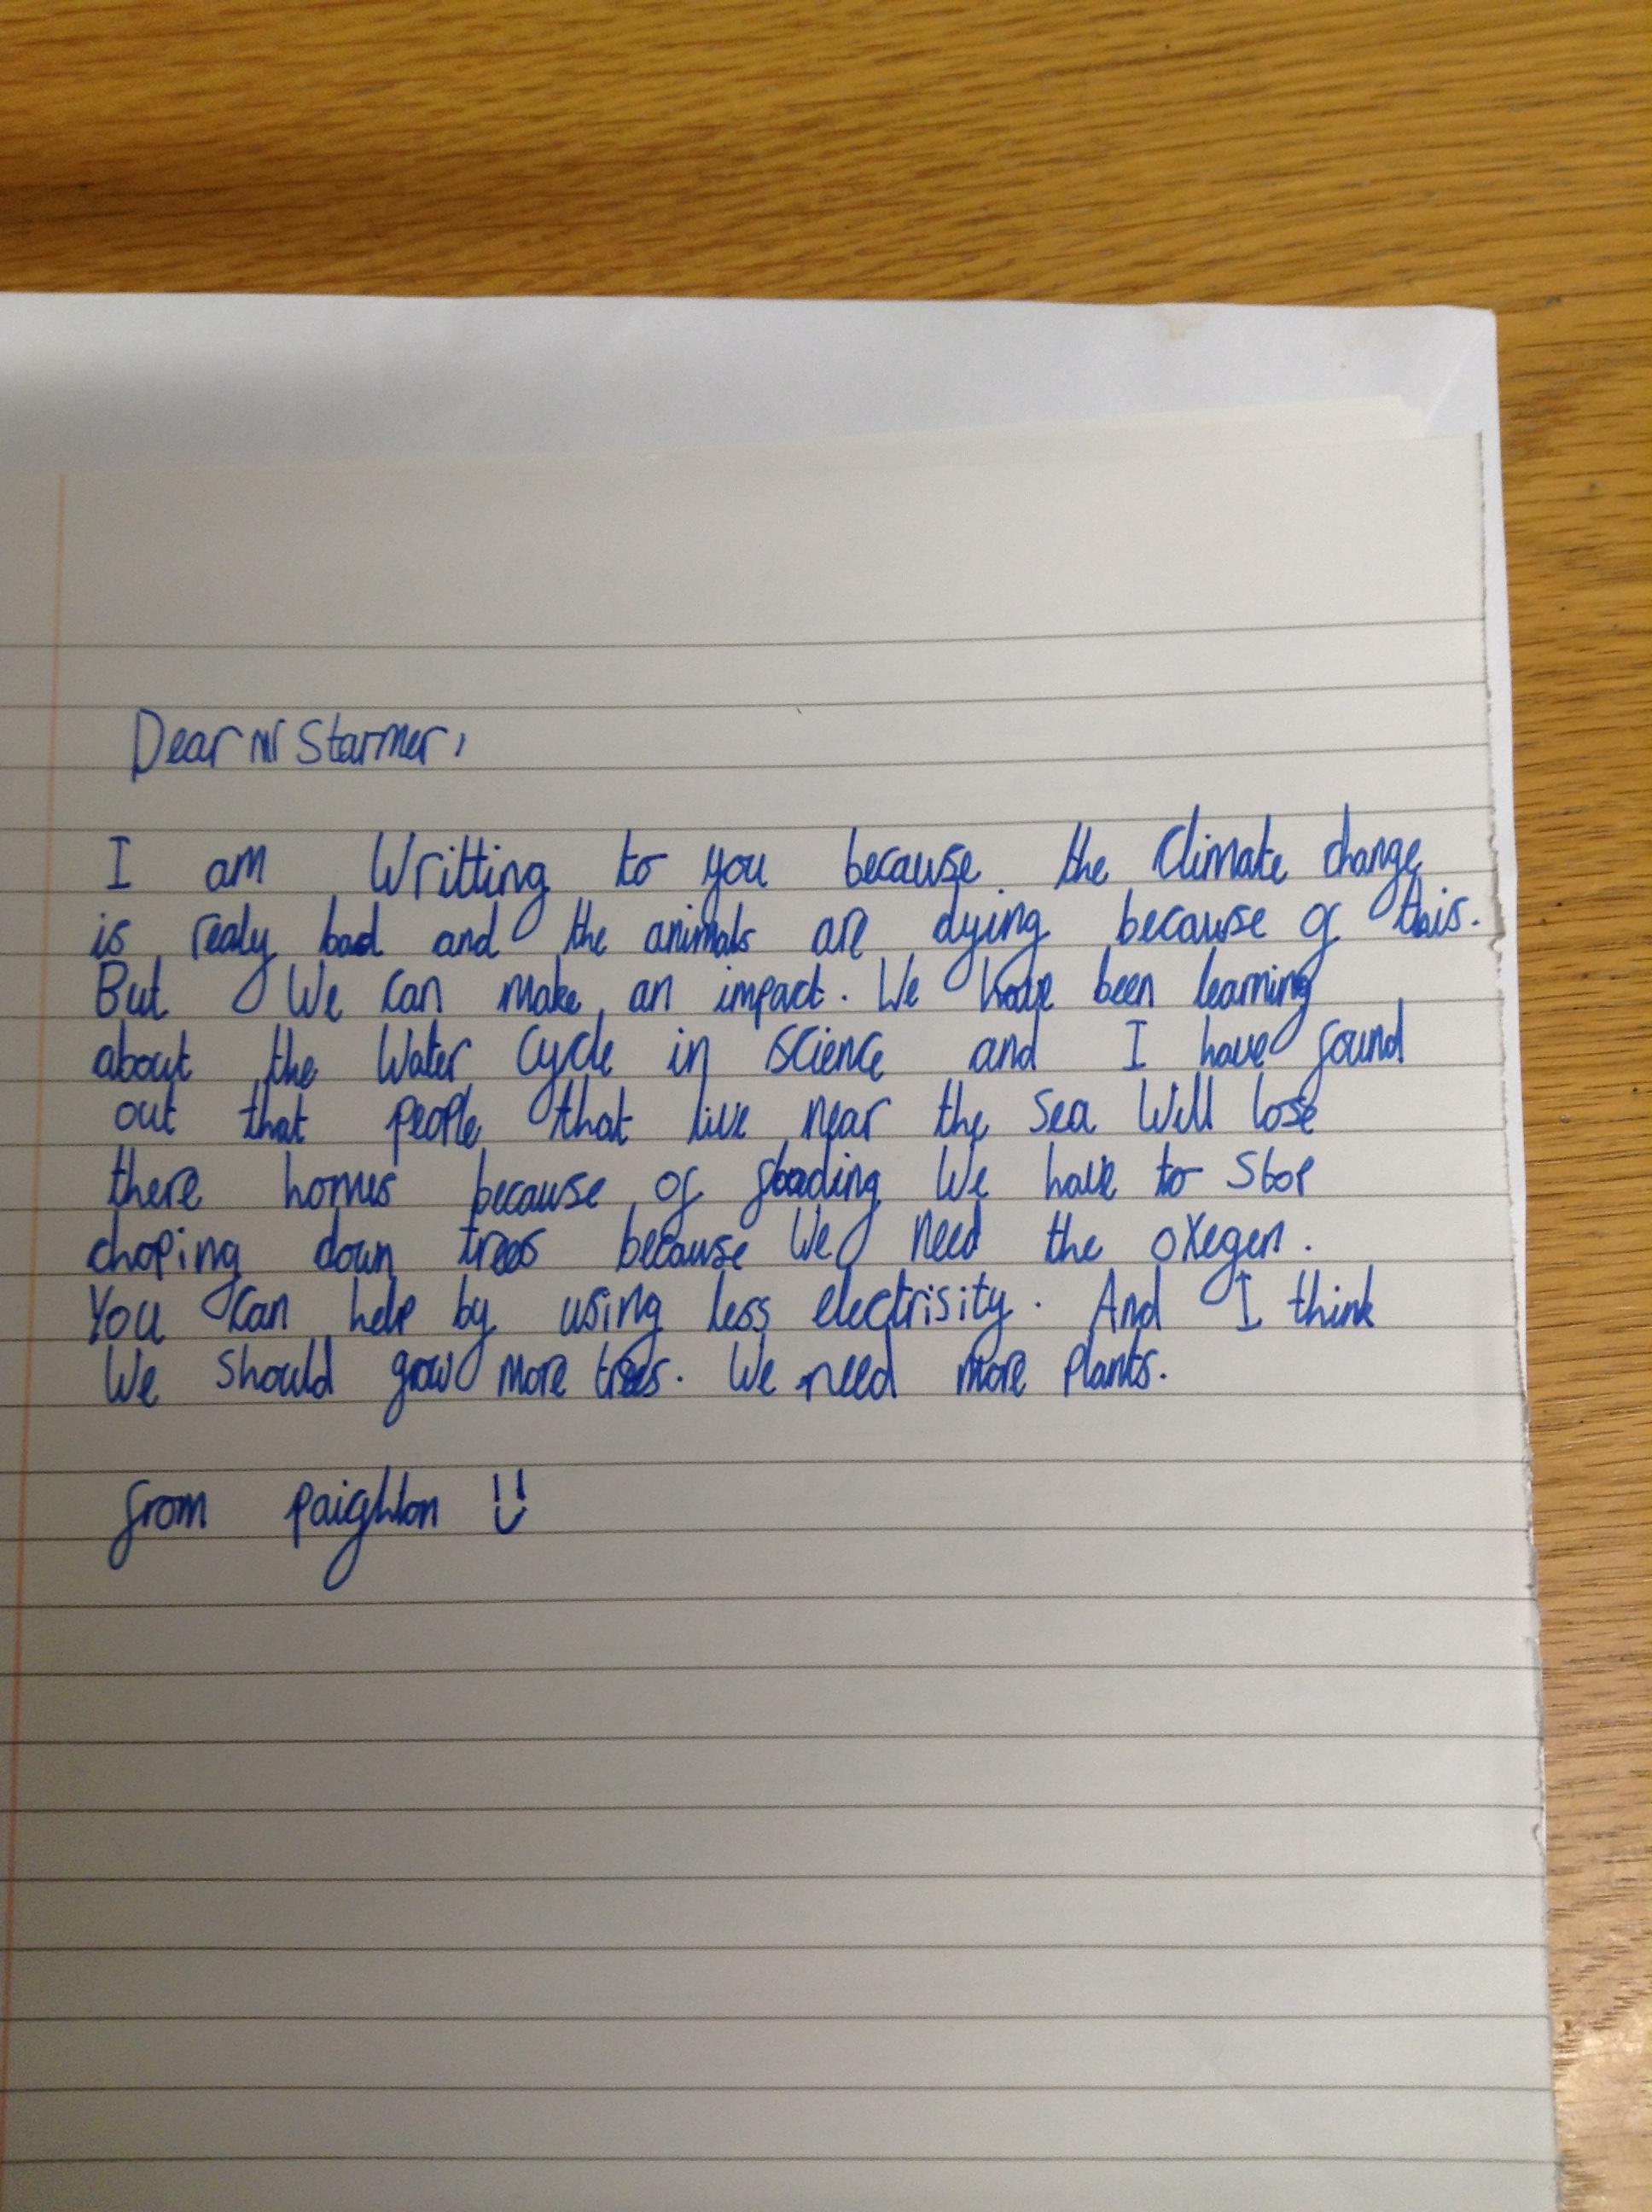 Dear Mr Starmer,
I am Writting to you because the Climate change
is realy bad and the animals are dying because of this.
But We can make an impact. We have been learning
about the Water Cycle in science and I have found
out that people that live near the Sea Will lose
there homes because of flooding We have to Stop
choping down trees because We need the oxegen.
You can help by using less electrisity. And I think
We should grow more trees. We need more plants.
from paighton